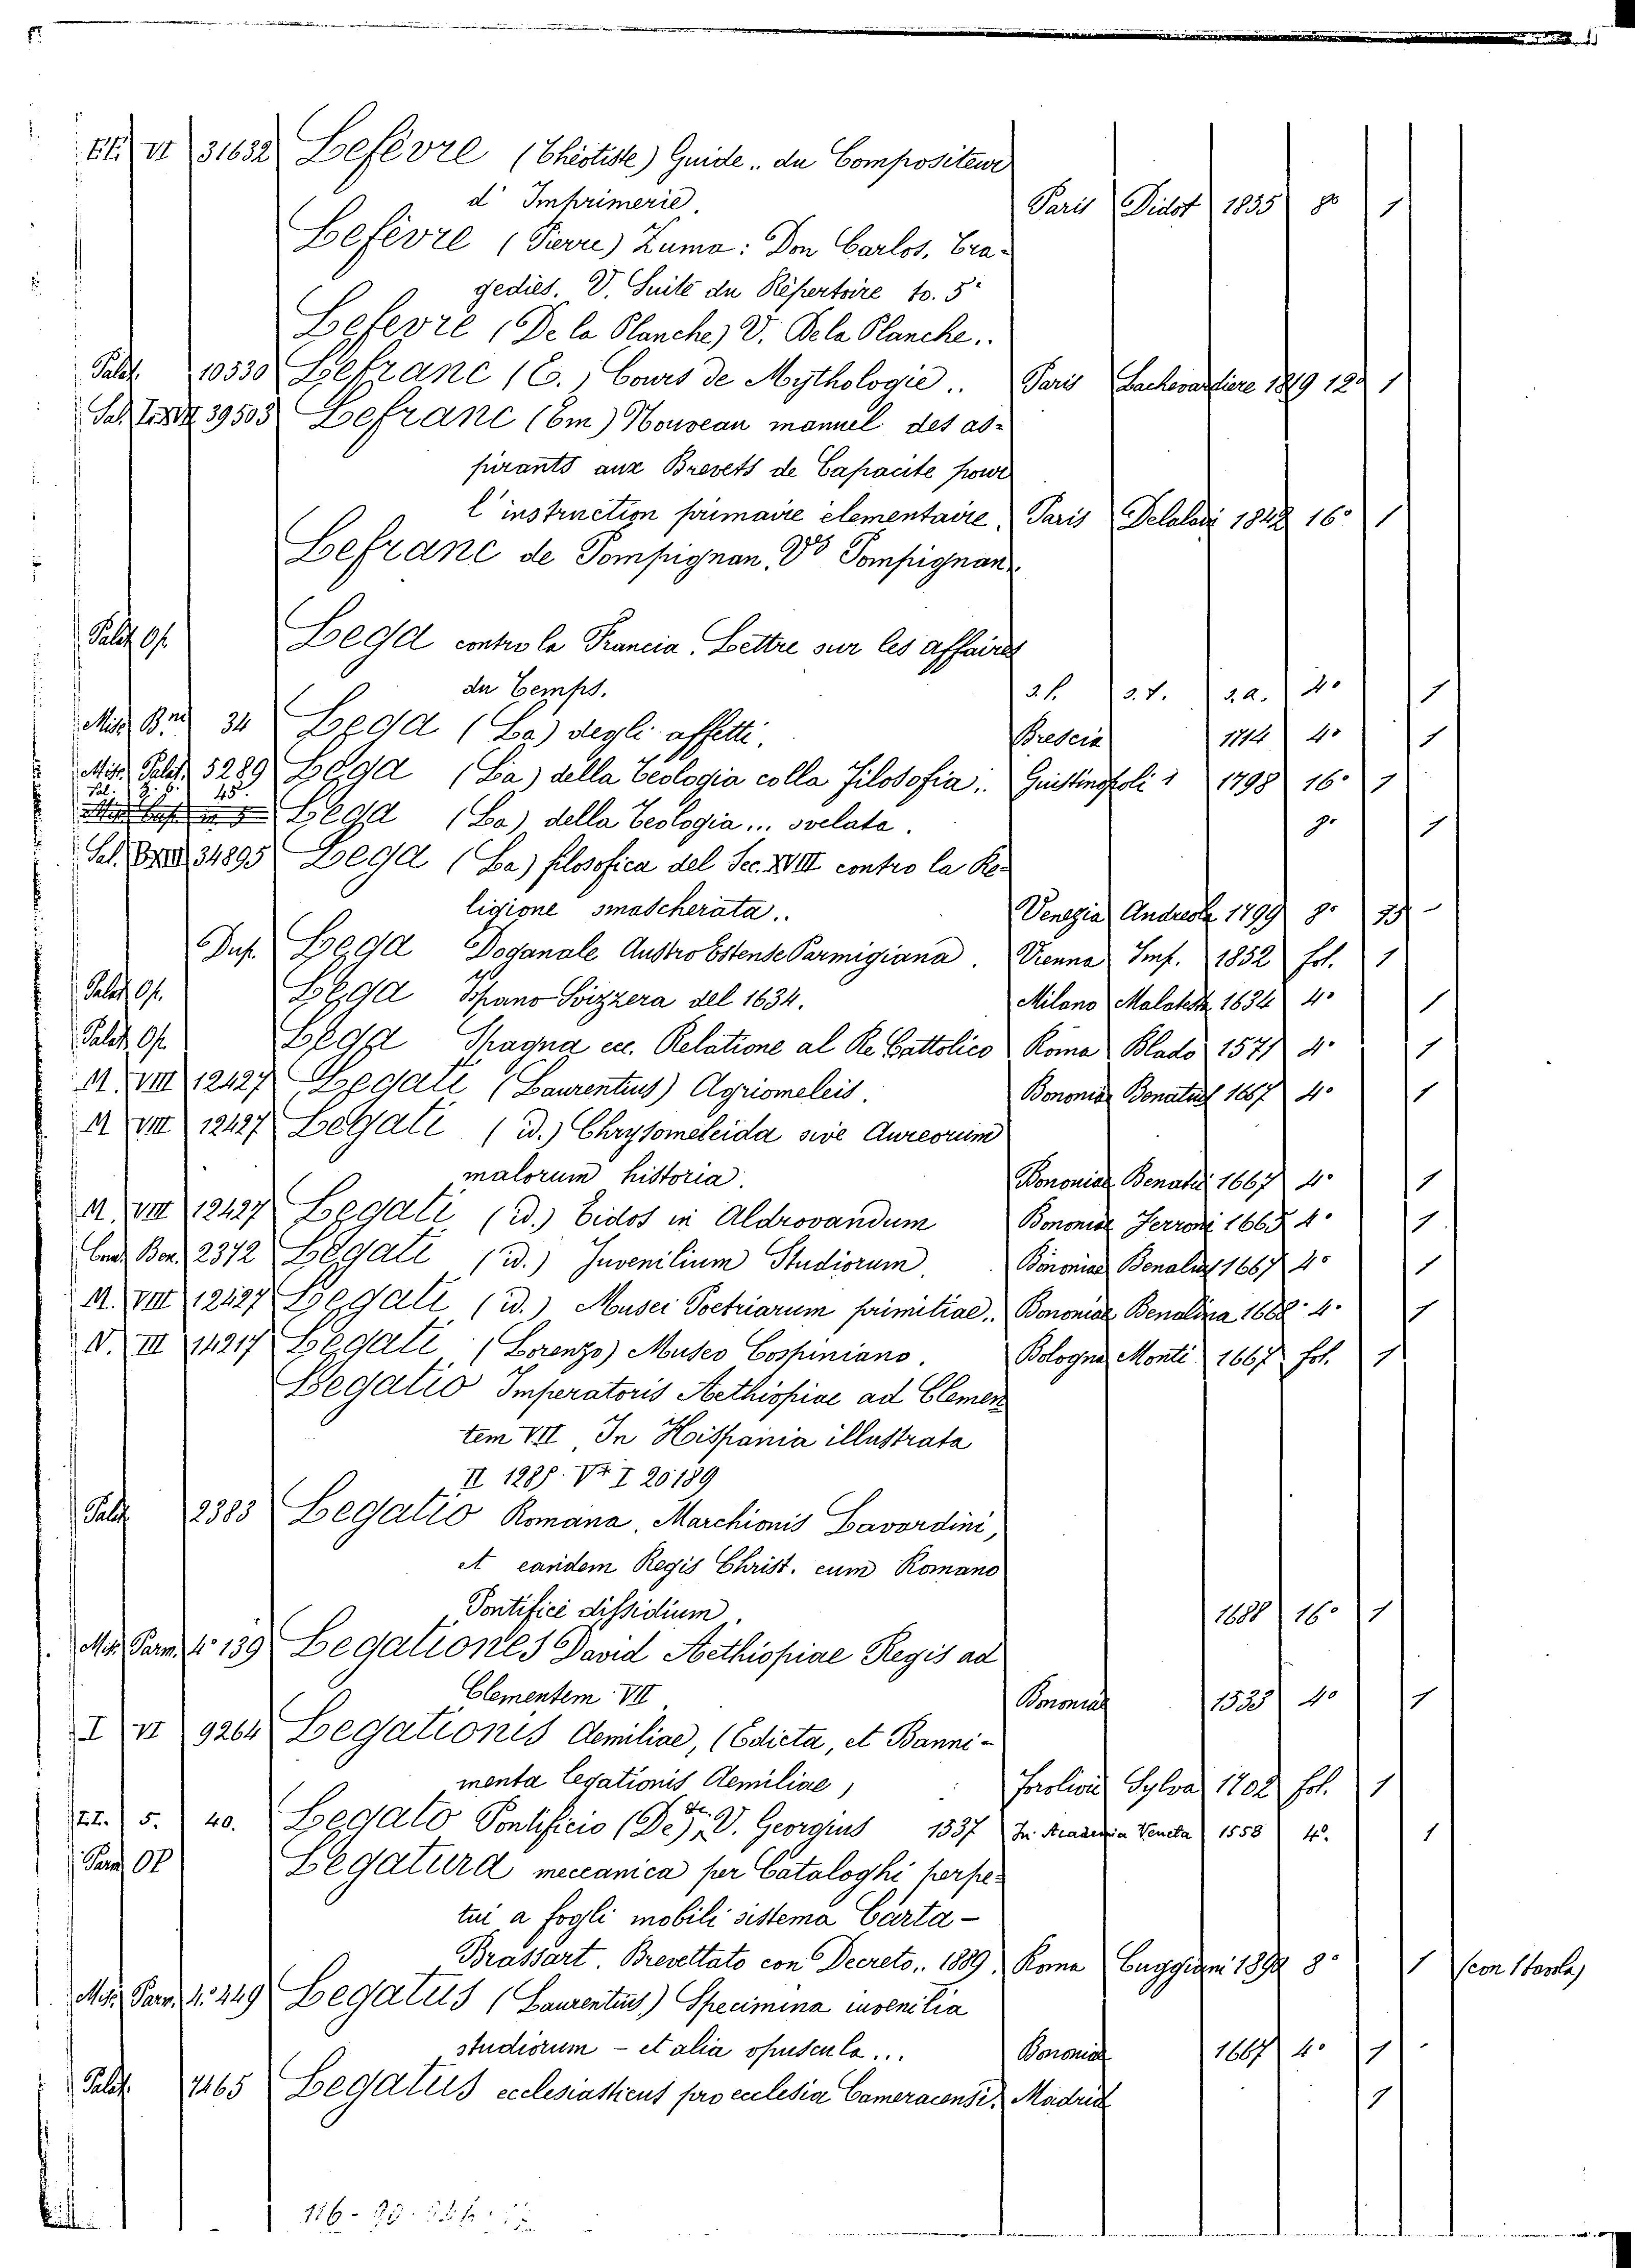 VI 31632 Lefèvre (Théotiste) Guide .. du Compositeur
d' Imprimerie. Paris Didot 1835 8° 1
Lefèvre (Pierre) Zuma: Don Carlos, Tra-
gedies. V. Suite du Répertoire to. 5°
Lefevre (De la Planche) V. De la Planche..
Palat. 10530 Lefranc (E.) Cours de Mythologie .. Paris Lachevardiere 1819 12° 1
39503 Lefranc (Em) Nouveau manuel des as-
pirants aux Brevets de Capacite pour
l'instruction primaire elementaire, Paris Delalain 1842 16° 1
Lefranc de Pompignan. V° Pompignan
Palat Op. Lega contro la Francia. Lettre sur les affaires
du Temps. s.l. s.t. s.a. 4° 1
Misc. 34 Lega (La) degli affetti. Brescia 1714 4° 1
Misc. Palat. 5289 Lega (La) della Teologia colla Filosofia.. 1798 16° 1
Lega (La) della Teologia... svelata. 8° 1
Sal. 34895 Lega (La) filosofica del Sec. XVIII contro la Re-
ligione smascherata.. Venezia Andreola 1799 8°
Dup. Lega Doganale Austro Estense Parmigiana. Vienna Imp. 1852 fol. 1
Palat Op. Lega Ispano Svizzera del 1634. Milano Malatesta 1634 4° 1
Palat Op. Lega Spagna ecc. Relatione al Re Cattolico Roma Blado 1571 4° 1
M. VIII 12427 Legati (Laurentius) Agriomeleis. Bononiae 1667 4° 1
M VIII 12427 Legati (id.) Chrysomeleida sive Aureorum
malorum historia. Bononiae Benatii 1667 4° 1
M. VIII 12427 Legati (id.) Eidos in Aldrovandum Bononiae Ferroni 1665 4° 1
Bon. 2372 Legati (id.) Juvenilium Studiorum. Bononiae 1667 4° 1
M. VIII 12427 Legati (id.) Musei Poetriarum primitiae.. Bononiae 1668 4° 1
V. III 14217 Legati (Lorenzo) Museo Cospiniano. Bologna Monti 1667 fol. 1
Legatio Imperatoris Aethiopiae ad Clemen
tem VII In Hispania illustrata
II 1288. I 20189
Palat. 2383 Legatio Romana, Marchionis Lavardini,
et earidem Regis Christ. cum Romano
Pontifice dissidium. 1688 16° 1
Misc. Parm. 4° 139 Legationes David Aethiopiae Regis ad
Clementem VII Bononiae 1533 4° 1
I VI 9264 Legationis Aemiliae, (Edicta, et Banni-
menta legationis Aemiliae) Sylva 1702 fol. 1
5. 40. Legato Pontificio (De) V. Georgius 1537 In Academia Veneta 1558 4°. 1
Parm OP Legatura meccanica per Cataloghi perpe-
tui a fogli mobili sistema Carta-
Brassart. Brevettato con Decreto.. 1889. Roma 8° 1 (con 1 tavola)
Misc. Parm. 4° 249 Legatus (Laurentius) Specimina iuvenilia
studiorum - et alia opuscula... Bononiae 1667 4° 1
Palat. 7465 Legatus ecclesiasticus pro ecclesia Cameracensi. Madrid 1